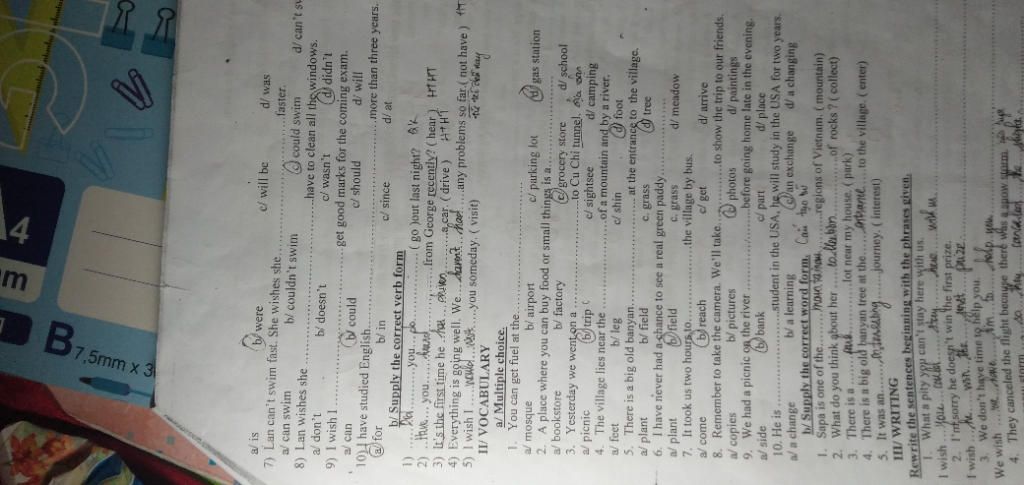 a/ is b/ were c/ will be d/ was
7) Lan can't swim fast. She wishes she..............faster.
a/ can swim b/ couldn't swim c/ could swim d/ can't sw
8) Lan wishes she ..................have to clean all the windows.
a/ don't b/ doesn't c/ wasn't d/ didn't
9) I wish I ..................get good marks for the coming exam.
a/ can b/ could c/ should d/ will
10) I have studied English...............more than three years.
a/ for b/ in c/ since d/ at
b/ Supply the correct verb form
1) Did you go ( go )out last night?
2) Have you heard from George recently? ( hear ) HTHT
3) It's the first time he has driven a car. ( drive ) HTHT
4) Everything is going well. We haven't had any problems so far.( not have )
5) I wish I would visit you someday. ( visit)
II/ VOCABULARY
a/ Multiple choice.
1. You can get fuel at the............
a/ mosque b/ airport c/ parking lot d/ gas station
2. A place where you can buy food or small things is a ..........
a/ bookstore b/ factory c/ grocery store d/ school
3. Yesterday we went on a ...............to Cu Chi tunnel.
a/ picnic b/ trip c/ sightsee d/ camping
4. The village lies near the ............of a mountain and by a river.
a/ feet b/ leg c/ shin d/ foot
5. There is a big old banyan..............at the entrance to the village.
a/ plant b/ field c. grass d/ tree
6. I have never had a chance to see a real green paddy..........
a/ plant b/ field c. grass d/ meadow
7. It took us two hours to............the village by bus.
a/ come b/ reach c/ get d/ arrive
8. Remember to take the camera. We'll take...........to show the trip to our friends.
a/ copies b/ pictures c/ photos d/ paintings
9. We had a picnic on the river ............before going home late in the evening.
a/ side b/ bank c/ part d/ place
10. He is ............student in the USA, he will study in the USA for two years.
a/ a change b/ a learning c/ an exchange d/ a changing
b/ Supply the correct word form.
1. Sapa is one of the mountainous regions of Vietnam. ( mountain)
2. What do you think about her collection of rocks ? ( collect)
3. There is a park lot near my house. ( park)
4. There is a big old banyan tree at the entrance to the village. ( enter)
5. It was an interesting journey. ( interest)
III/ WRITING
Rewrite the sentences beginning with the phrases given.
1. What a pity you can't stay here with us.
I wish you could stay here with us
2. I'm sorry he doesn't win the first prize.
I wish he win the first prize
3. We don't have time to help you.
We wish we have time to help you
4. They canceled the flight because there was a snow storm.
so they canceled the flight
B7,5mm x 3
A4